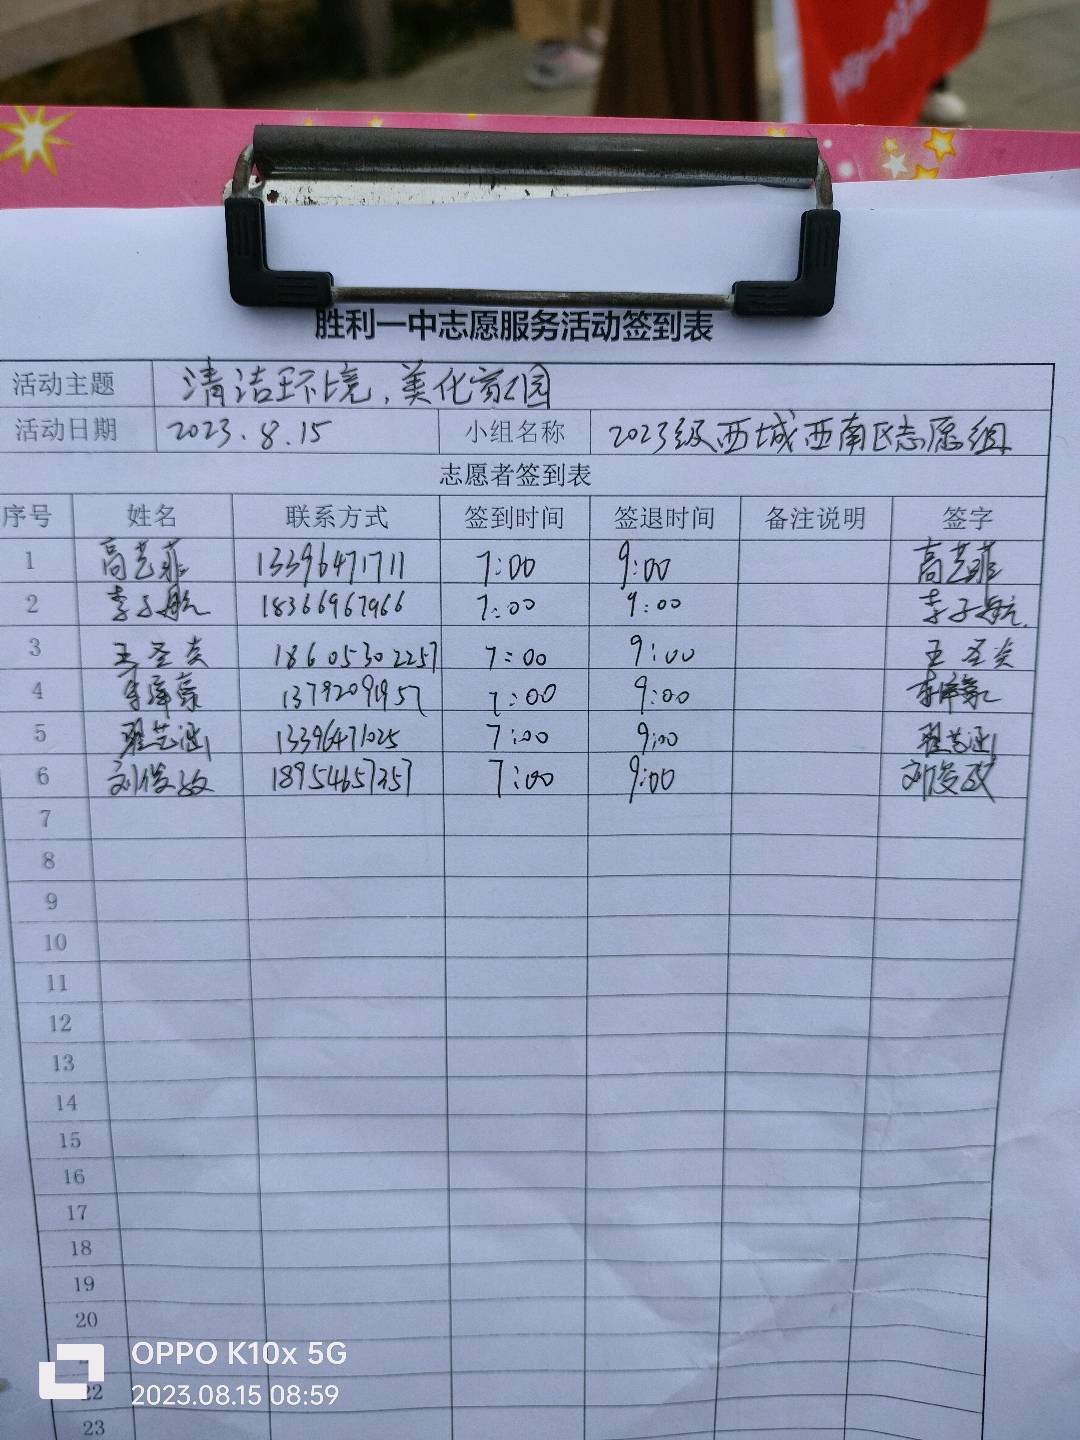 胜利一中志愿服务活动签到表
活动主题 清洁环境,美化家园
活动日期 2023.8.15 小组名称 2023级西城西南区志愿组
志愿者签到表
序号 姓名 联系方式 签到时间 签退时间 备注说明 签字
1 高艺菲 13396471711 7:00 9:00 高艺菲
2 李子航 18366967966 7:00 9:00 李子航
3 王圣炎 18605302257 7:00 9:00 王圣炎
4 李泽豪 13792091957 7:00 9:00 李泽豪
5 程艺涵 13396471025 7:00 9:00 程艺涵
6 刘俊政 18954657357 7:00 9:00 刘俊政
7
8
9
10
11
12
13
14
15
16
17
18
19
20
22
23
OPPO K10x 5G
2023.08.15 08:59